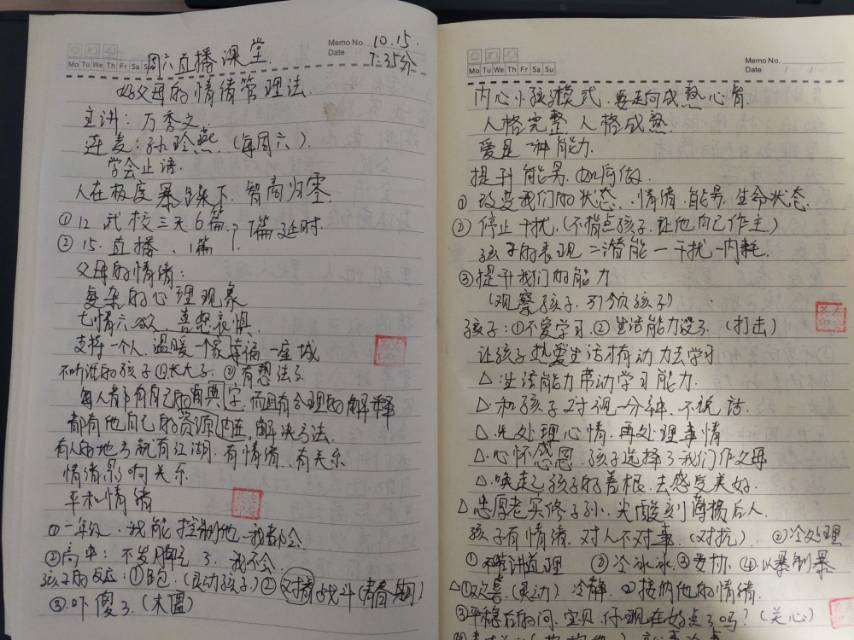 Memo No. 10.15.
Mo Tu We Th Fr Sa Su
Date 7:35分
周六直播课堂
好父母的情绪管理法.
主讲: 万秀文
连麦: 孙玲燕. (每周六).
学会止语.
人在极度暴躁下, 智商归零
①12 武校三天6篇
7篇延时.
②15. 直播、1篇
父母的情绪:
复杂的心理现象
七情六欲, 喜怒哀惧.
支持一个人, 温暖一个家幸福一座城
不听话的孩子①长大了. ②有想法了
每人都有自己的字典, 而且有合理的解释
都有他自己的资源 解决方法.
有人的地方就有江湖. 有情绪. 有关系
情绪影响关系
平和情绪
①一年级. 我能控制他 我都会
②高中: 不发脾气了. 我不会.
孩子的反应: ① (灵动孩子)② 对着战斗(青春期)
③吓傻了. (木僵)
Memo No.
Mo Tu We Th Fr Sa Su
Date
内心小孩模式. 要走向成熟心智
人格完整 人格成熟.
爱是一种能力.
提升能量. 如何做.
① 改变我们的状态. 情绪. 能量. 生命状态.
② 停止干扰, (不指点孩子. 让他自己作主)
孩子的表现=潜能-干扰-内耗.
③提升我们的能力
(观察孩子. 引领孩子)
孩子: ①不爱学习. ②生活能力没了. (打击)
让孩子热爱生活才有动力去学习
△生活能力带动学习能力.
△和孩子对视一分钟. 不说话.
△先处理心情. 再处理事情
△心怀感恩. 孩子选择了我们作父母
△唤起孩子的善根. 去感受美好.
△忠厚老实修子孙, 尖酸刻薄损后人.
孩子有情绪. 对人不对事. (对抗) ②冷处理
①不讲道理 ③冷冰冰 ③妥协. ④以暴制暴
△①欢喜. (灵动) 冷静. ②接纳他的情绪.
③平稳后的问. 宝贝. 你现在好点了吗? (关心)